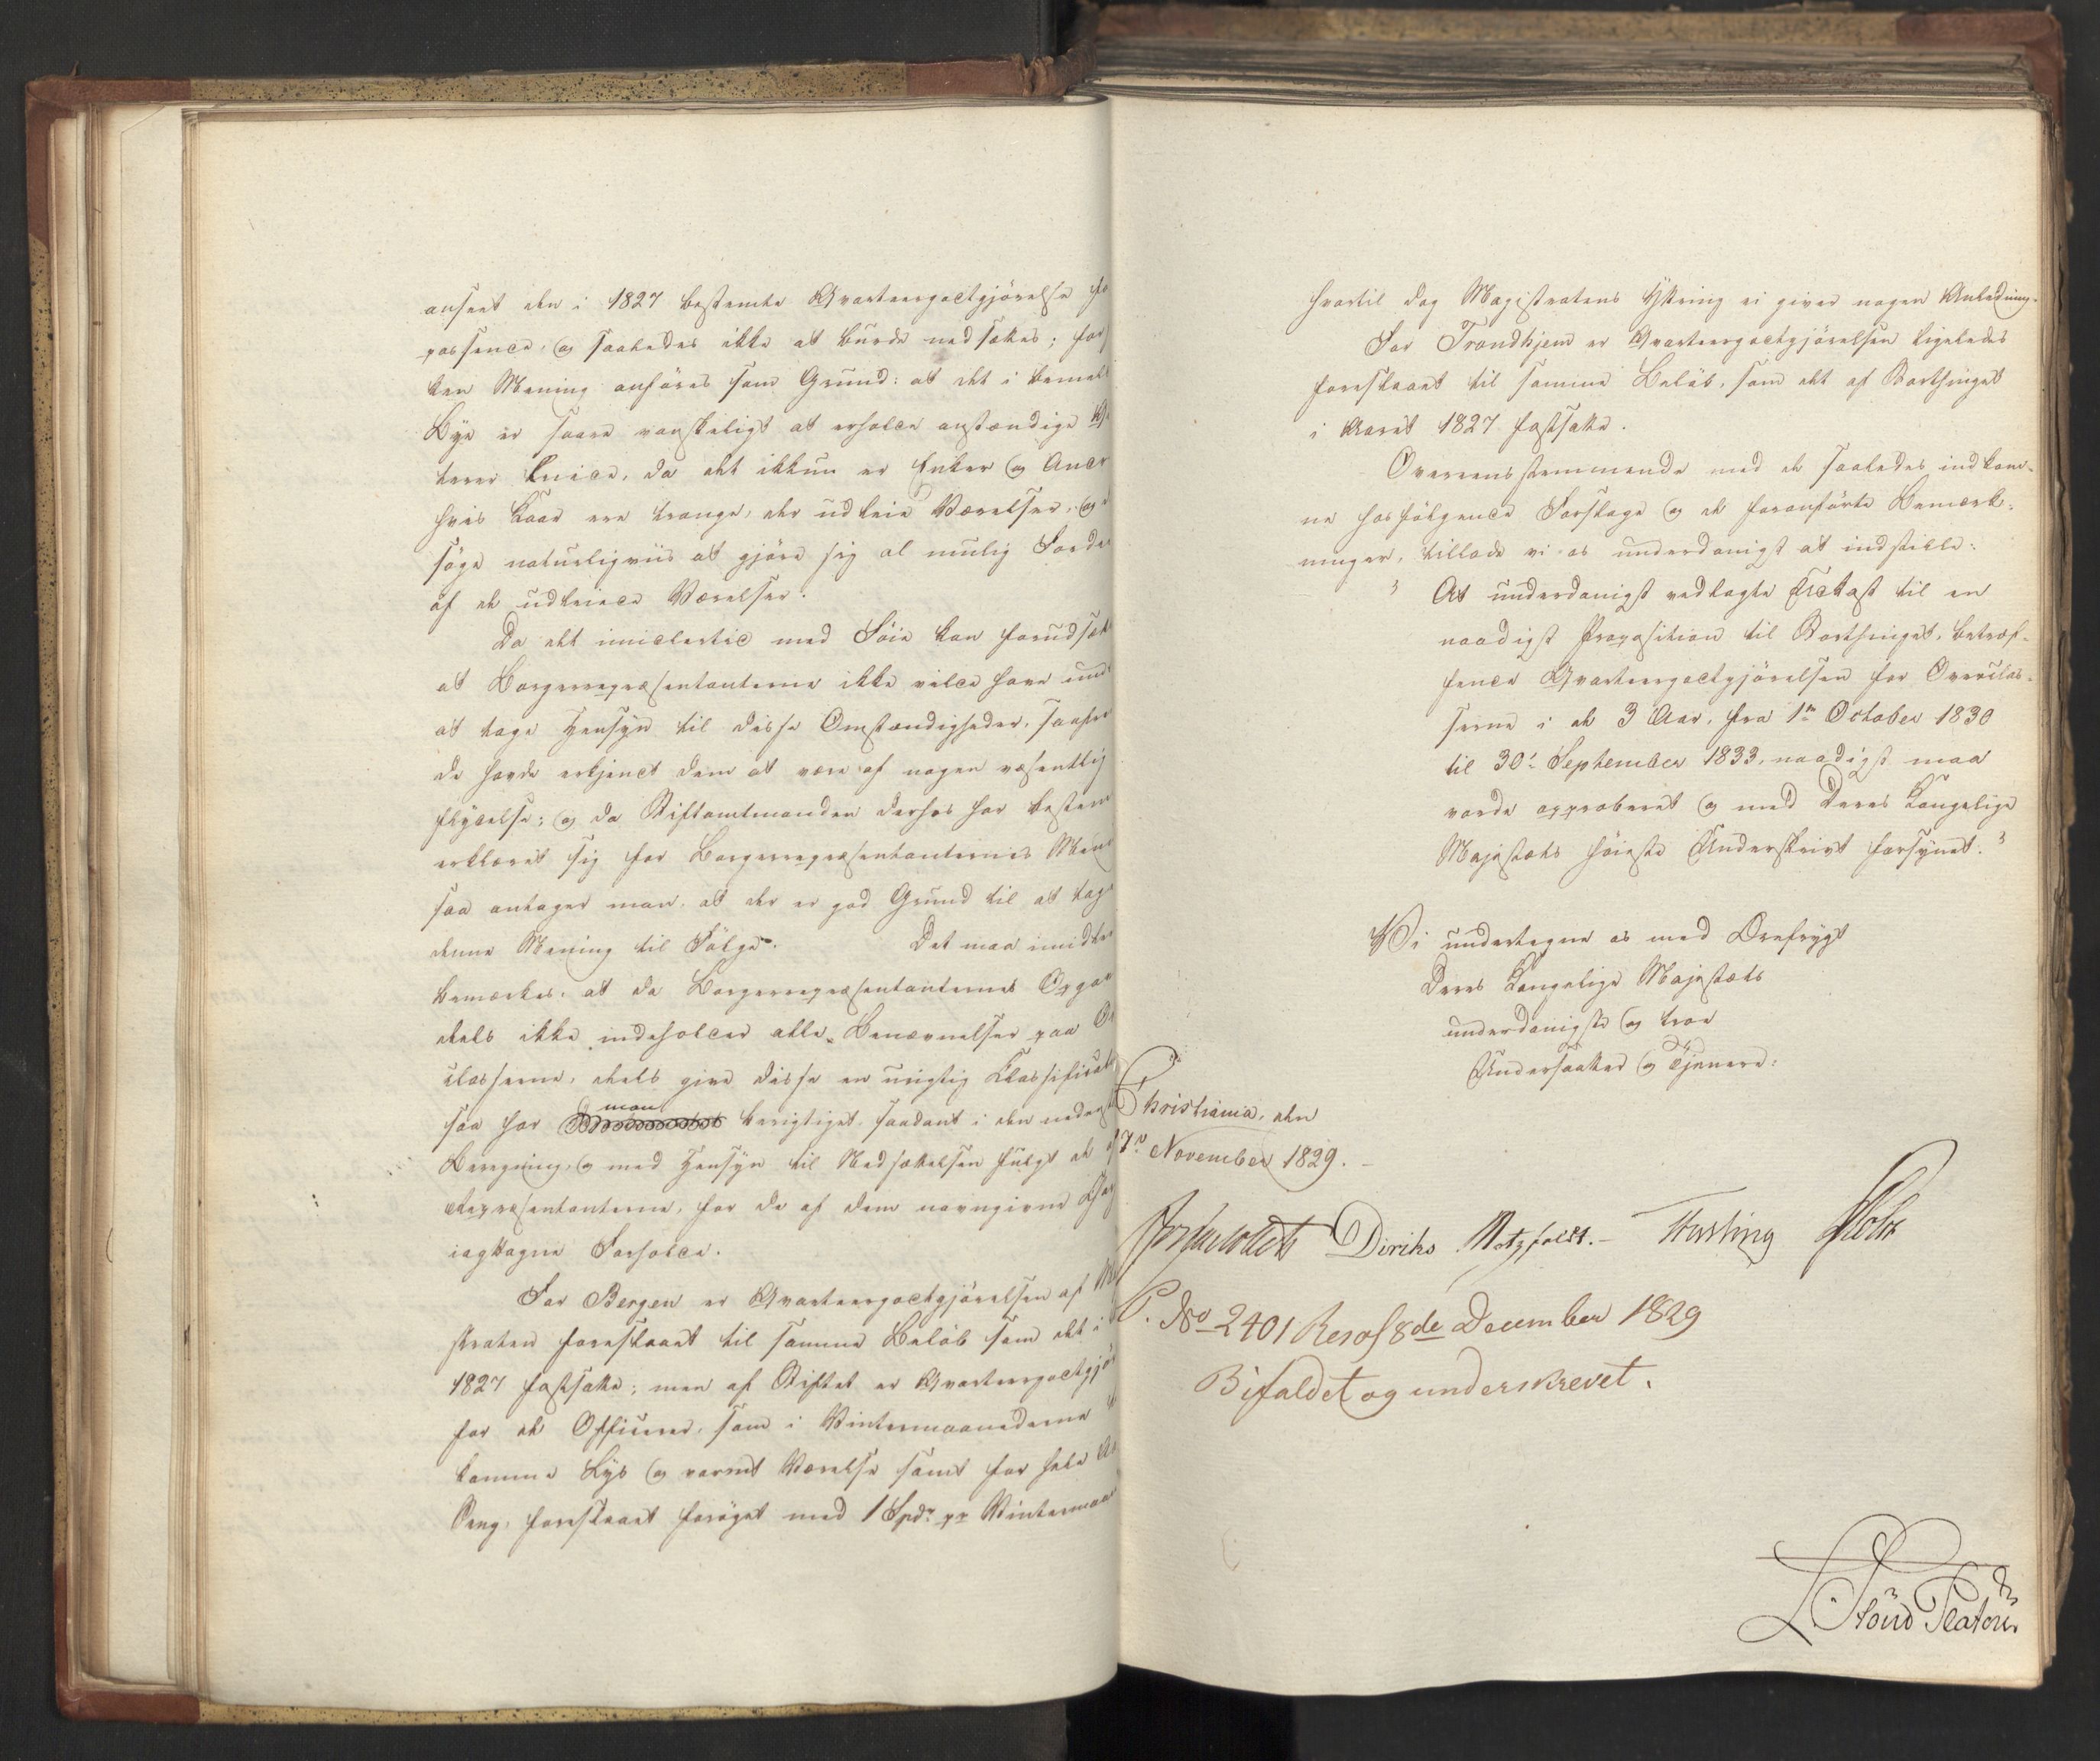 anseet den i 1827 bestemte Qvarteergodtgjörelse
passende, og saaledes ikke at burde nedsættes; for
ken Mening anföres som Grund: at det i bemel
Bye er saare vanskeligt at erholde anstændige
terer leiede, da det ikkun er Enker og Andr
hvis Kaar ere trange, der udleie Værelser, og
söge naturligviis at gjöre sig al mulig Forde
af de udleiede Værelser.
Da det imidlertid med Föie kan forudsæt
at Borgerrepræsentanterne ikke vilde have und
at tage Hensyn til disse Omstændigheder, saafr
de havde erkjendt dem at være af nogen væsentlig
flydelse; og da Stiftamtmanden derhos har bestem
erklæret sig for Borgerrepræsentanternes Men
saa antager man, at der er god Grund til at tage
denne Mening til Fölge. Det maa imidler
bemærkes, at da Borgerrepræsentanternes Opgav
deels ikke indeholder alle Benævnelser paa
classerne, deels give disse en urigtig Classificat
saa har man berigtiget saadant i denneden
Beregning, og med Hensyn til Nedsættelsen fulgt de
Repræsentanterne, for de af dem navngivne
iagttagne Forholde.
For Bergen er Qvarteergodtgjörelsen af Ma
straten foreslaaet til samme Belöb som det i
1827 fastsatte; men af Stiftet er Qvarteergodtgjör
for de Officerer, som i Vintermaanederne
komme Lys og varmt Værelse samt for hele
Seng, foreslaaet foröget med 1 Spdr pr Vintermaan
hvortil dog Magistratens Yttring ei giver nogen Anledning.
For Trondhjem er Qvarteergodtgjörelsen ligeledes
foreslaaet til samme Belöb, som det af Storthinget
i Aaret 1827 fastsatte.
Overeensstemmende med de saaledes indkom-
ne hosfölgende Forslage og de foranförte Bemærk-
ninger, tillade vi os underdanigst at indstille:
"At underdanigst vedlagte Udkast til en
naadigst Proposition til Storthinget, betræf-
fende Qvarteergodtgjörelsen for Overclas-
serne i de 3 Aar, fra 1n October 1830
til 30' September 1833, naadigst maa
vorde approberet og med Deres Kongelige
Majestæts höieste Underskrivt forsynet."
Vi undertegne os med Ærefrygt
Deres Kongelige Majestæts
underdanigste og troe
Undersaatter og Tjenere:
Christiania, den
17n November 1829.
Diriks Motzfeldt.– Fasting
P. No 2401 Resol 8de December 1829
Bifaldet og underskrevet.
Störd Platou